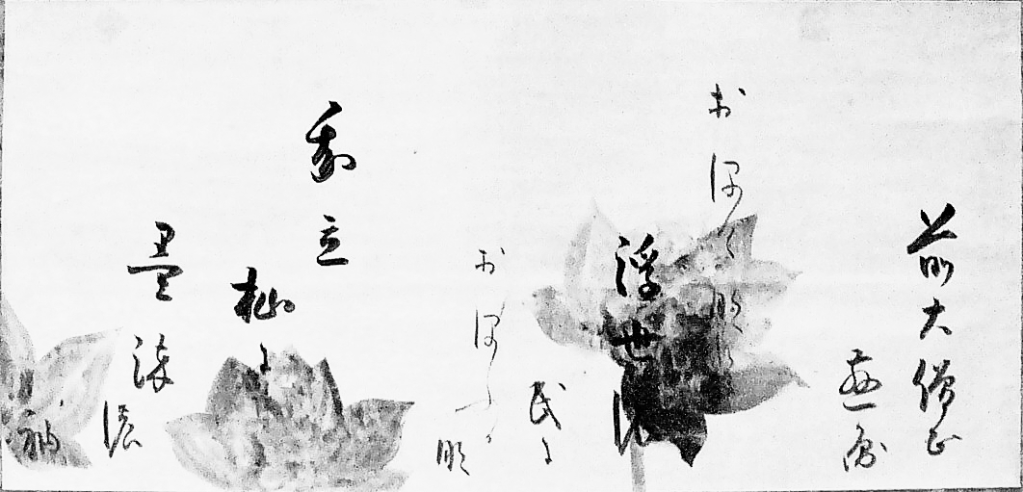 前大僧正
慈圓
おほけなく
浮世濃
民に
おほふか
那
我立
杣に
墨染
濃
袖